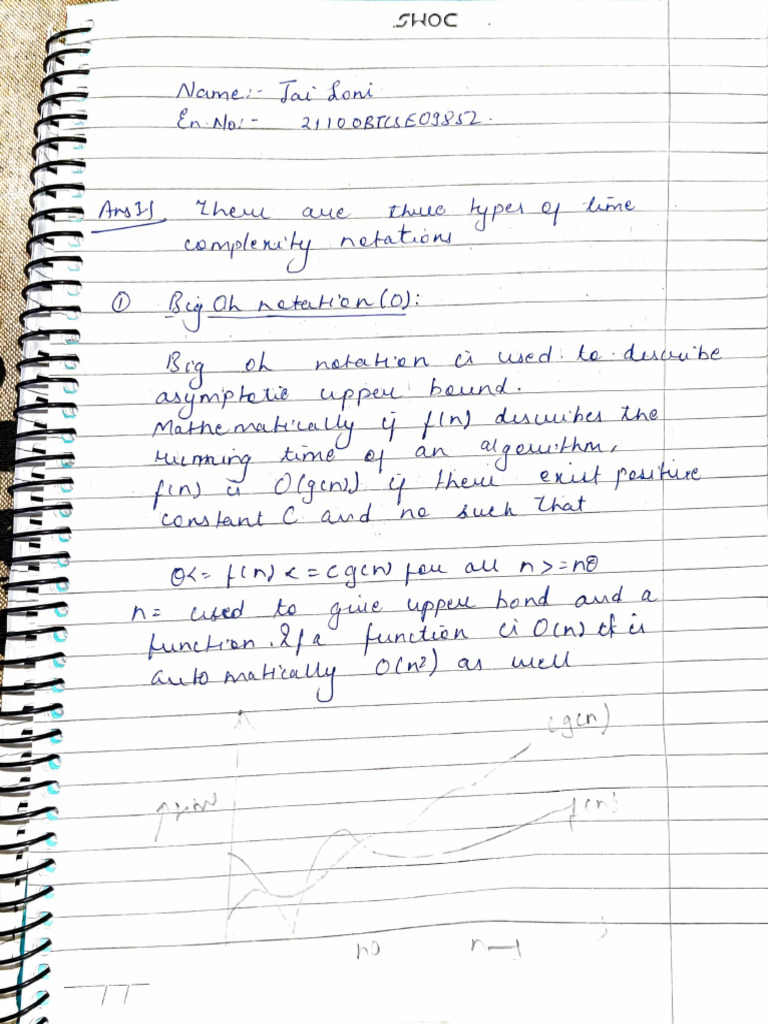 SHOC
Name:- Jai Soni
En.No:- 21100BTCSE09852
Ans 1) There are three types of time
complexity notations
① Big Oh notation (O):
Big oh notation is used to describe
asymptotic upper bound.
Mathematically if f(n) describes the
running time of an algorithm,
f(n) is O(g(n)) if there exist positive
constant C and no such that
0<= f(n) <= c g(n) for all n >= n0
n = used to give upper bond and a
function. If a function is O(n) it is
automatically O(n²) as well
c g(n)
f(n)
n0 n→